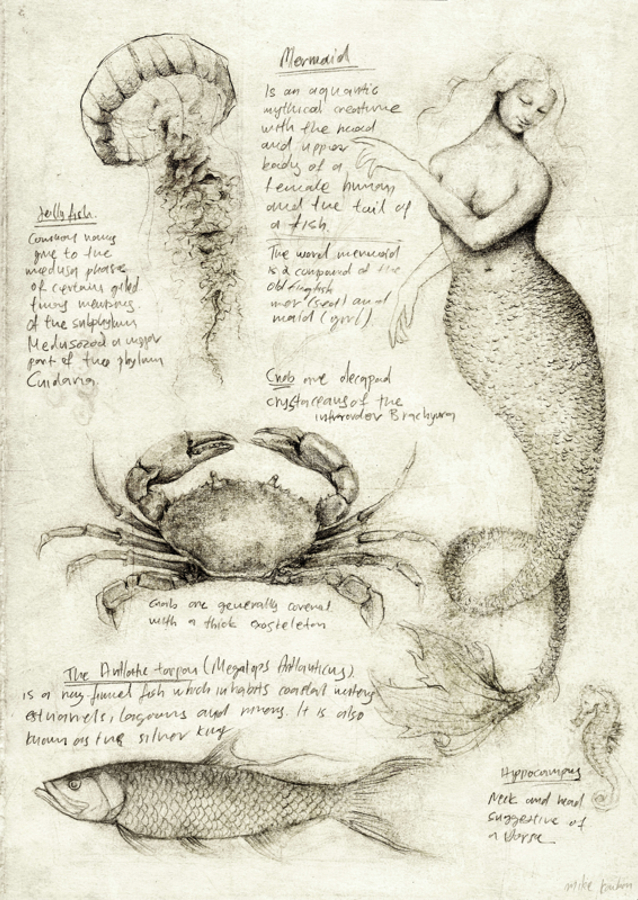 Mermaid
Is an aquantic
mythical creature
with the head
and upper
body of a
female human
and the tail of
a fish.
The word mermaid
is a compound of the
old english
mer (sea) and
maid (girl)
Jelly fish.
Common names
give to the
medusa phase
of certains
of the subphylum
Medusozoa a major
part of the phylum
Cnidaria
Crab are decapod
crystaceans of the
infraorder Brachyura
Crab are generally covered
with a thick exoskeleton
The Atlantic tarpon (Megalops Atlanticus)
is a ray-finned fish which inhabits coastal waters
estuaries, lagoons and rivers. It is also
known as the silver king
Hippocampus
Neck and head
suggestive of
a Horse
mike